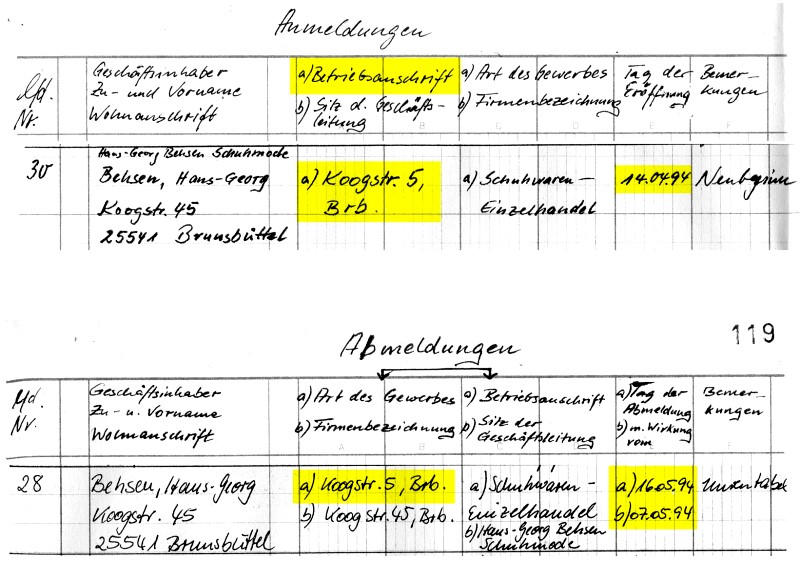 Anmeldungen
Lfd. Nr.
Geschäftsinhaber
Zu- und Vorname
Wohnanschrift
a) Betriebsanschrift
b) Sitz d. Geschäfts-
leitung
a) Art des Gewerbes
b) Firmenbezeichnung
Tag der
Eröffnung
Bemer-
kungen
30
Hans-Georg Behsen Schuhmode
Behsen, Hans-Georg
Koogstr. 45
25541 Brunsbüttel
a) Koogstr. 5,
Brb.
a) Schuhwaren-
Einzelhandel
14.04.94
Neubeginn
119
Abmeldungen
Lfd.
Nr.
Geschäftsinhaber
Zu- u. Vorname
Wohnanschrift
a) Art des Gewerbes
b) Firmenbezeichnung
a) Betriebsanschrift
b) Sitz der
Geschäftsleitung
a) Tag der
Abmeldung
b) m. Wirkung
vom
Bemer-
kungen
28
Behsen, Hans-Georg
Koogstr. 45
25541 Brunsbüttel
a) Koogstr. 5, Brb.
b) Koogstr. 45, Brb.
a) Schuhwaren-
Einzelhandel
b) Hans-Georg Behsen
Schuhmode
a) 16.05.94
b) 07.05.94